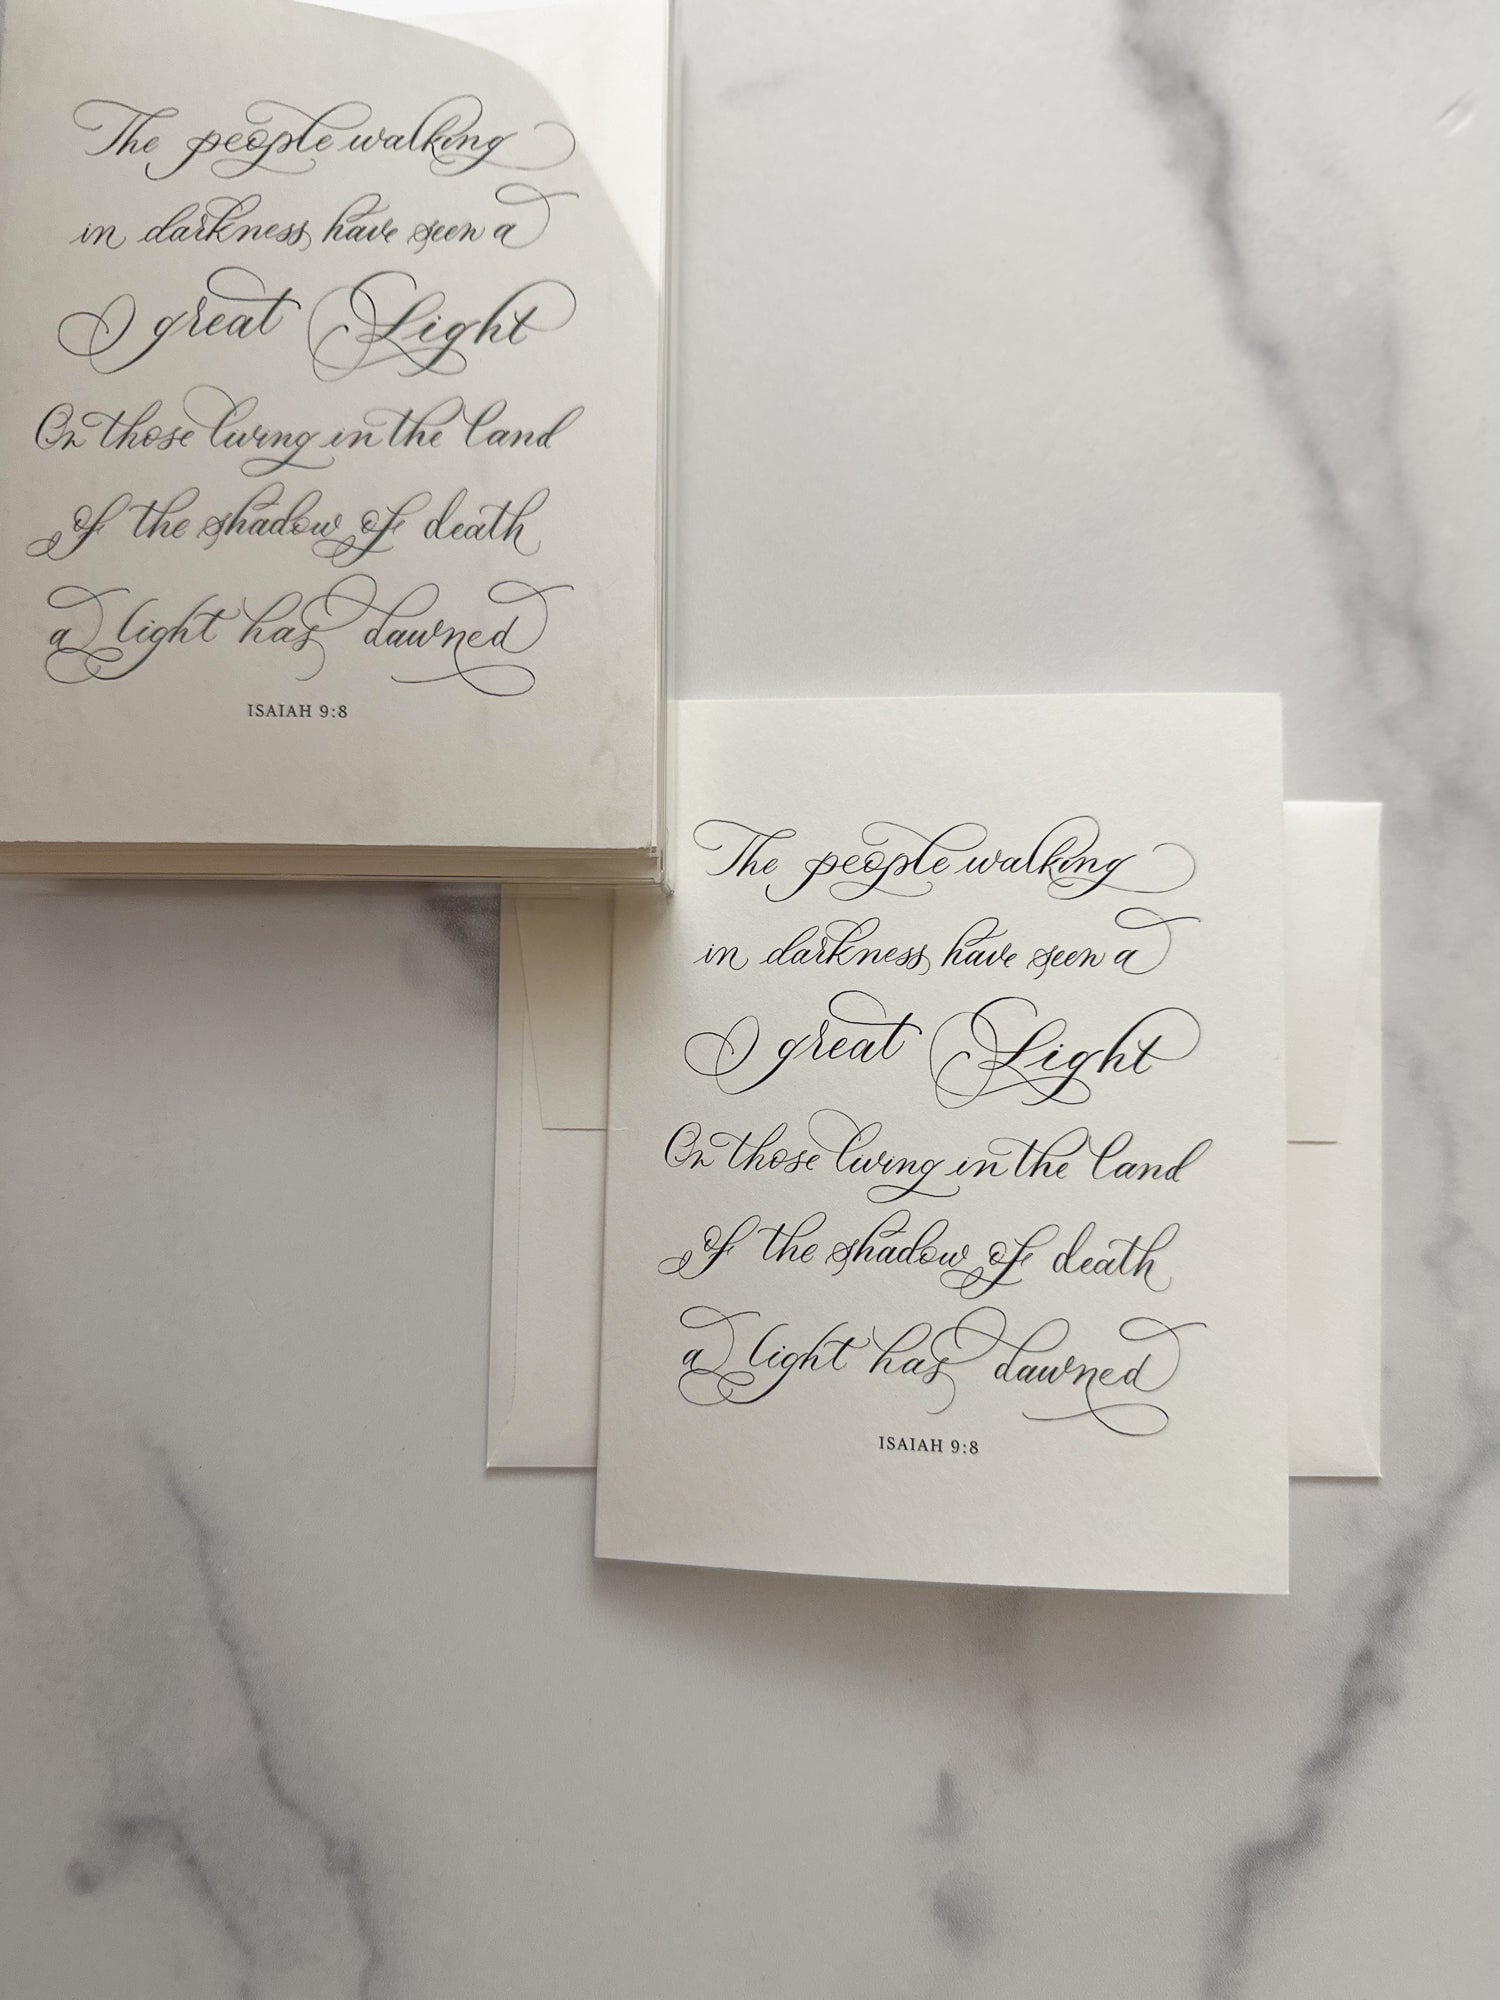 The people walking
in darkness have seen a
great Light
On those living in the land
of the shadow of death
a light has dawned
ISAIAH 9:8
The people walking
in darkness have seen a
great Light
On those living in the land
of the shadow of death
a light has dawned
ISAIAH 9:8